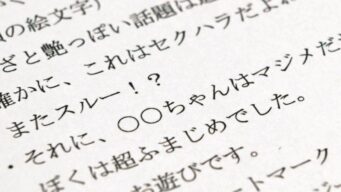 の絵文字)
ざと艶っぽい話題は
確かに、これはセクハラだよね
またスルー!?
・それに、○○ちゃんはマジメだ
ぼくは超ふまじめでした。
お遊びです。
ートマーク